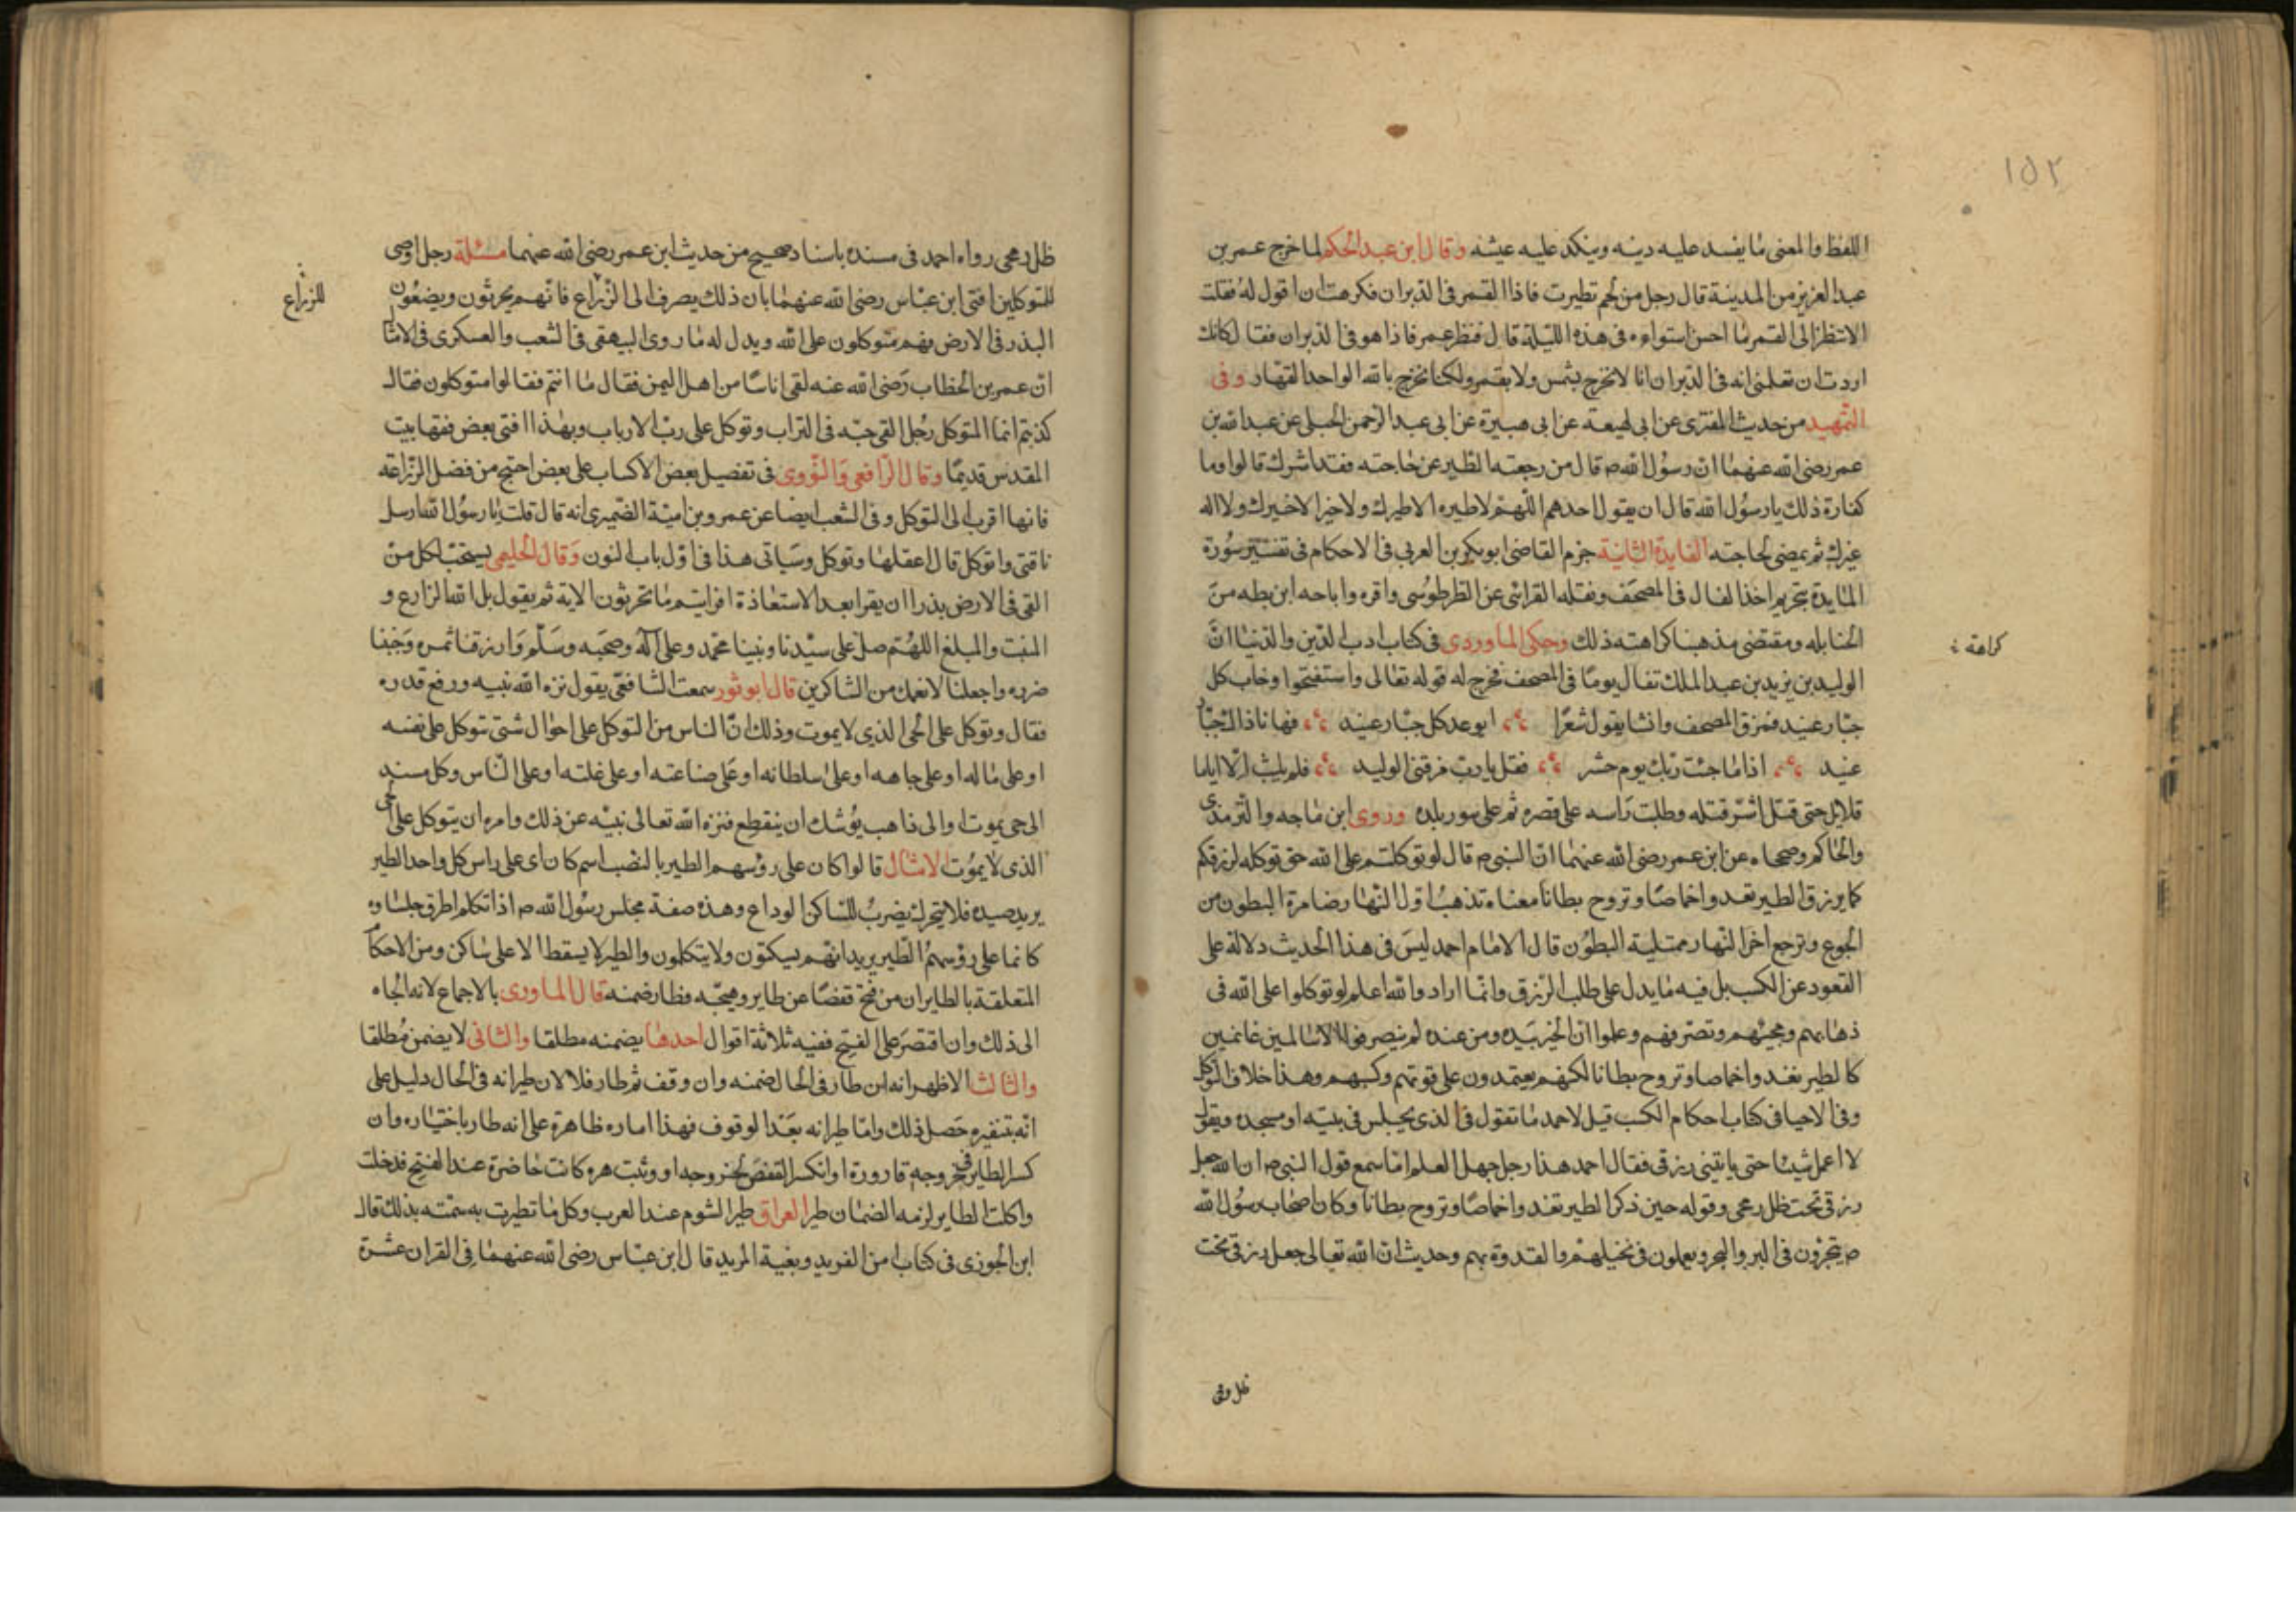 ١٥٢
اللفظ والمعنى ما يفسد عليه دينه وينكد عليه عيشه وقال ابن عبد الحكم لما خرج عمر بن
عبد العزيز من المدينة قال رجل من لخم تطيرت فاذا القمر فى الدبران فكرهت ان اقول له فقلت
الا تنظر الى القمر ما احسن استواءه فى هذه الليلة قال فنظر عمر فاذا هو فى الدبران فقال كانك
اردت ان تعلمنى انه فى الدبران انا لا نخرج بشمس ولا بقمر ولكنا نخرج بالله الواحد القهار وفى
التمهيد من حديث المقرى عن ابى لهيعة عن ابى هبيرة عن ابى عبد الرحمن الحبلى عن عبد الله بن
عمر رضى الله عنهما ان رسول الله ص قال من رجعته الطير عن حاجته فقد اشرك قالوا وما
كفارة ذلك يا رسول الله قال ان يقول احدهم اللهم لا طيره الا طيرك ولا خير الا خيرك ولا اله
غيرك ثم يمضى لحاجته الفايدة الثانية جزم القاضى ابو بكر بن العربى فى الاحكام فى تفسير سورة
المايدة بتحريم اخذ الفال فى المصحف ونقله القرافى عن الطرطوسى واقره واباحه ابن بطه من
الحنابله ومقتضى مذهبنا كراهته ذلك وحكى الماوردى فى كتاب ادب الدين والدنيا ان
كراهة
الوليد بن يزيد بن عبد الملك تفال يوما فى المصحف فخرج له قوله تعالى واستفتحوا وخاب كل
جبار عنيد فمزق المصحف وانشا يقول شعرا اتوعد كل جبار عنيد فها انا ذاك جبار
عنيد اذا ما جئت ربك يوم حشر فقل يا رب مزقنى الوليد فلم يلبث الا اياما
قلايل حتى قتل اشر قتله وصلبت راسه على قصره ثم على سور بلده وروى ابن ماجه والترمذى
والحاكم وصححاه عن ابن عمر رضى الله عنهما ان النبى ص قال لو توكلتم على الله حق توكله لرزقكم
كما يرزق الطير تغدوا خماصا وتروح بطانا معناه تذهب اول النهار ضامرة البطون من
الجوع وترجع اخر النهار ممتلية البطون قال الامام احمد ليس فى هذا الحديث دلالة على
القعود عن الكسب بل فيه ما يدل على طلب الرزق وانما اراد والله اعلم لو توكلوا على الله فى
ذهابهم ومجيئهم وتصرفهم وعلموا ان الخير بيده ومن عنده لم ينصرفوا الا سالمين غانمين
كالطير تغدوا خماصا وتروح بطانا لكنهم يعتمدون على قوتهم وكسبهم وهذا خلاف التوكل
وفى الاحيا فى كتاب احكام الكسب قيل لاحمد ما تقول فى الذى يجلس فى بيته او مسجده ويقول
لا اعمل شيئا حتى ياتينى رزقى فقال احمد هذا رجل جهل العلم اما سمع قول النبى ص ان الله جعل
رزقى تحت ظل رمحى وقوله حين ذكر الطير تغدوا خماصا وتروح بطانا وكان اصحاب رسول الله
ص يتجرون فى البر والبحر ويعملون فى نخيلهم والقدوة بهم وحديث ان الله تعالى جعل رزقى تحت
ظل رمحى رواه احمد فى مسنده باسناد صحيح من حديث ابن عمر رضى الله عنهما مسئلة رجل اوصى
للمتوكلين افتى ابن عباس رضى الله عنهما بان ذلك يصرف الى الزراع فانهم يحرثون ويضعون
للزراع
البذر فى الارض فهم متوكلون على الله ويدل له ما روى البيهقى فى الشعب والعسكرى فى الامثال
ان عمر بن الخطاب رضى الله عنه لقى اناسا من اهل اليمن فقال ما انتم فقالوا متوكلون فقال
كذبتم انما المتوكل رجل القى حبه فى التراب وتوكل على رب الارباب وبهذا افتى بعض فقها بيت
المقدس قديما وقال الرافعى والنووى فى تفصيل بعض الاكساب على بعض احتج من فضل الزراعه
فانها اقرب الى التوكل وفى الشعب ايضا عن عمرو بن امية الضميرى انه قال قلت يا رسول الله ارسل
ناقتى واتوكل قال اعقلها وتوكل وسياتى هذا فى اول باب النون وقال الحليمى يستحب لكل من
القى فى الارض بذرا ان يقرا بعد الاستعاذة افرايتم ما تحرثون الاية ثم يقول بل الله الزارع و
المنبت والمبلغ اللهم صل على سيدنا ونبينا محمد وعلى اله وصحبه وسلم وارزقنا ثمره وجنبنا
ضرره واجعلنا لانعمك من الشاكرين قال ابو ثور سمعت الشافعى يقول نزه الله نبيه ورفع قدره
فقال وتوكل على الحى الذى لا يموت وذلك ان الناس من التوكل على احوال شتى توكل على نفسه
او على ماله او على جاهه او على سلطانه او على صناعته او على غلته او على الناس وكل مستند
الى حى يموت او الى ذاهب يوشك ان ينقطع فنزه الله تعالى نبيه عن ذلك وامره ان يتوكل على الحى
الذى لا يموت الامثال قالوا كان على رؤسهم الطير بالنصب اسم كان اى على راس كل واحد الطير
يريد صيده فلا يتحرك يضرب للساكن الوداع وهذه صفة مجلس رسول الله ص اذا تكلم اطرق جلساوه
كانما على رؤسهم الطير يريد انهم يسكتون ولا يتكلمون والطير لا يسقط الا على ساكن ومن الاحكام
المتعلقة بالطايران من فتح قفصا عن طاير وهيجه فطار ضمنه قال الماوردى بالاجماع لانه الجاه
الى ذلك وان اقتصر على الفتح ففيه ثلاثة اقوال احدها يضمنه مطلقا والثانى لا يضمن مطلقا
والثالث الاظهر انه ان طار فى الحال ضمنه وان وقف ثم طار فلا لان طيرانه فى الحال دليل على
انه بتنفيره حصل ذلك واما طيرانه بعد الوقوف فهذا اماره ظاهرة على انه طار باختياره وان
كسر الطاير فى خروجه قارورة او انكسر القفص لخروجه او وثبت هره كانت حاضرة عند الفتح فدخلت
واكلت الطاير لزمه الضمان طير العراق طير الشوم عند العرب وكل ما تطيرت به سمته بذلك قال
ابن الجوزى فى كتاب من الفريد وبغية المريد قال ابن عباس رضى الله عنهما فى القران عشرة